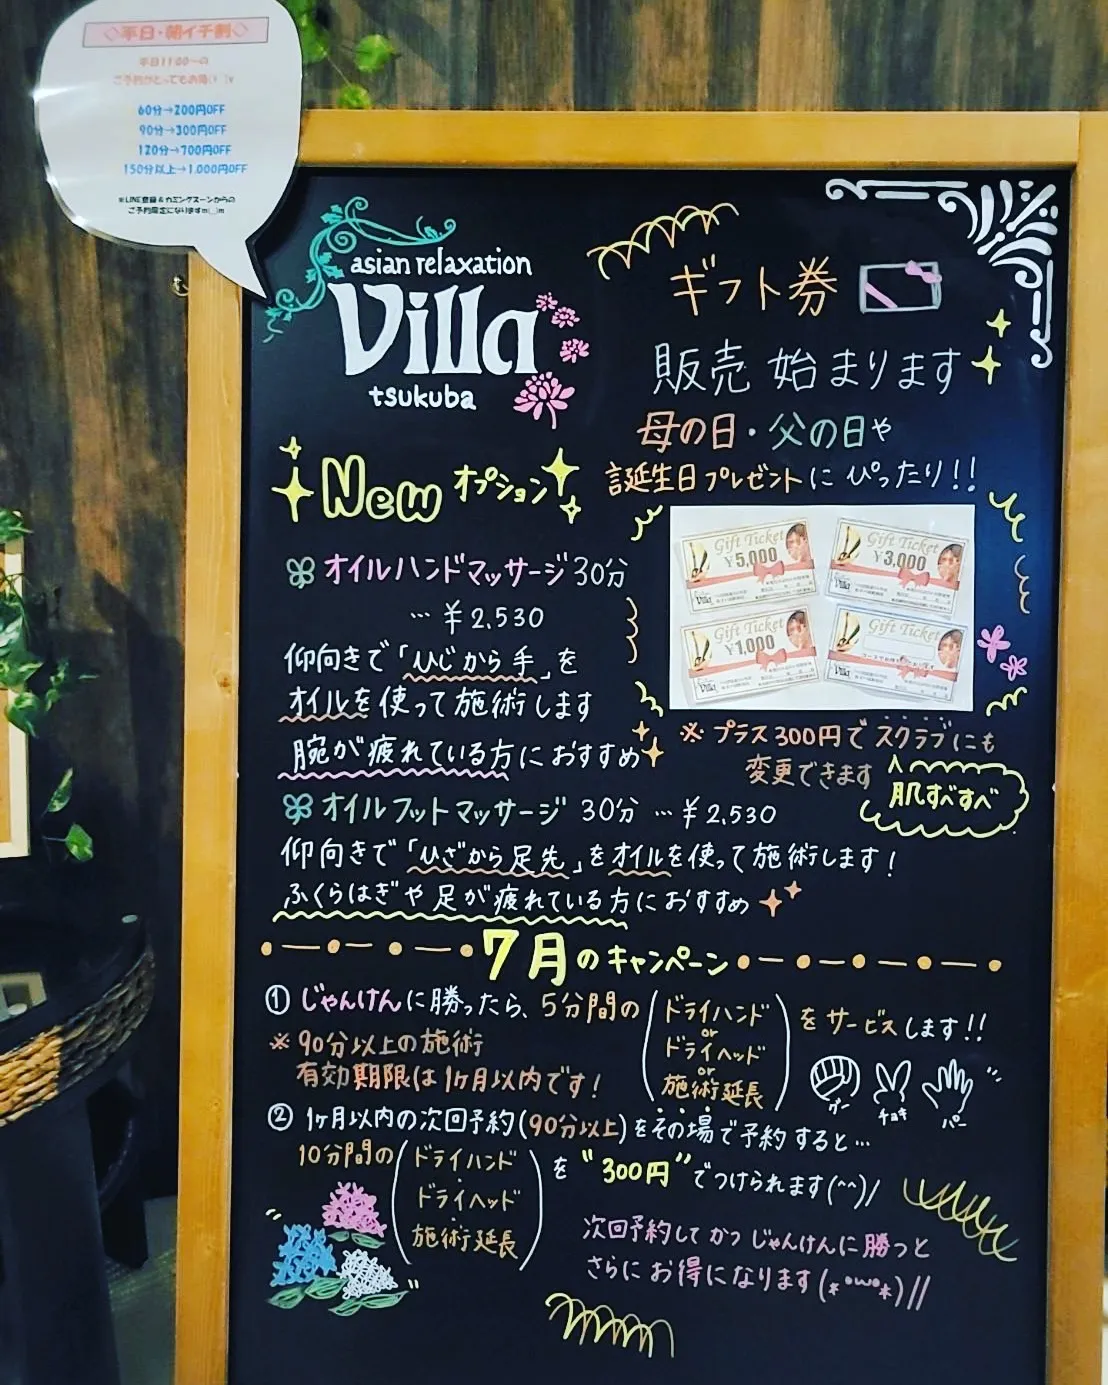 ◇平日・朝イチ割◇
平日11:00〜の
ご予約がとってもお得(^_^)v
60分→200円OFF
90分→300円OFF
120分→700円OFF
150分以上→1,000円OFF
※LINE登録&カミングスーンからの
ご予約限定になりますm(__)m
asian relaxation
Villa
tsukuba
ギフト券
販売 始まります
母の日・父の日や
誕生日プレゼントに ぴったり!!
Gift Ticket
¥5,000
Villa
Gift Ticket
¥3,000
Villa
Gift Ticket
¥1,000
Villa
Gift Ticket
Villa
New オプション
オイルハンドマッサージ 30分
… ¥2,530
仰向きで「ひじから手」を
オイルを使って施術します
腕が疲れている方におすすめ
※プラス300円でスクラブにも
変更できます
肌すべすべ
オイルフットマッサージ 30分 … ¥2,530
仰向きで「ひざから足先」をオイルを使って施術します!
ふくらはぎや足が疲れている方におすすめ
7月のキャンペーン
① じゃんけんに勝ったら、5分間の(ドライハンド
or
ドライヘッド
or
施術延長)をサービスします!!
※90分以上の施術
有効期限は1ヶ月以内です!
グー チョキ パー
② 1ヶ月以内の次回予約(90分以上)をその場で予約すると…
10分間の(ドライハンド
・
ドライヘッド
・
施術延長)を"300円"でつけられます(^^)/
次回予約して かつ じゃんけんに勝つと
さらにお得になります(*°ω°*)//